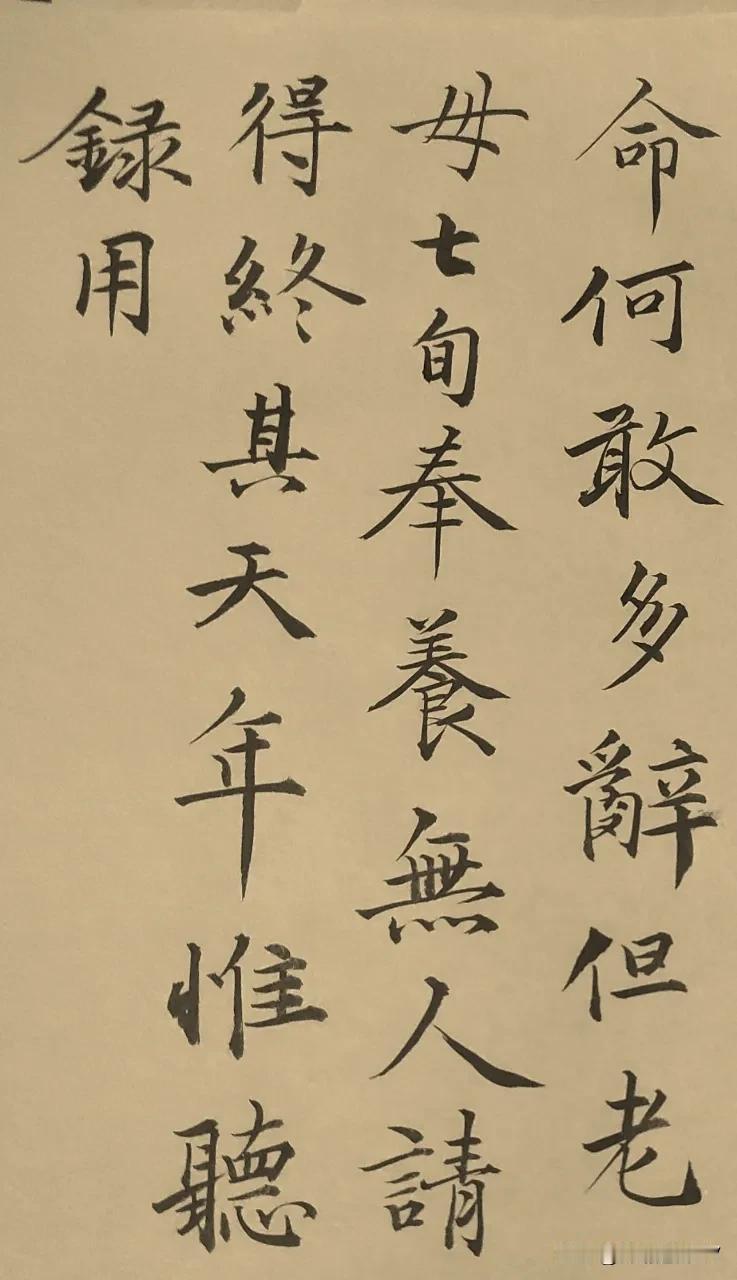 命何敢多辭但老
母七旬奉養無人請
得終其天年惟聽
録用